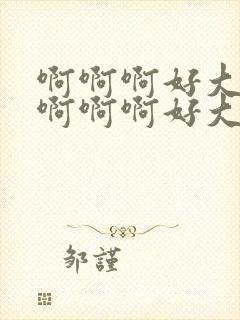 啊啊啊好大
啊啊啊好大
邹謹